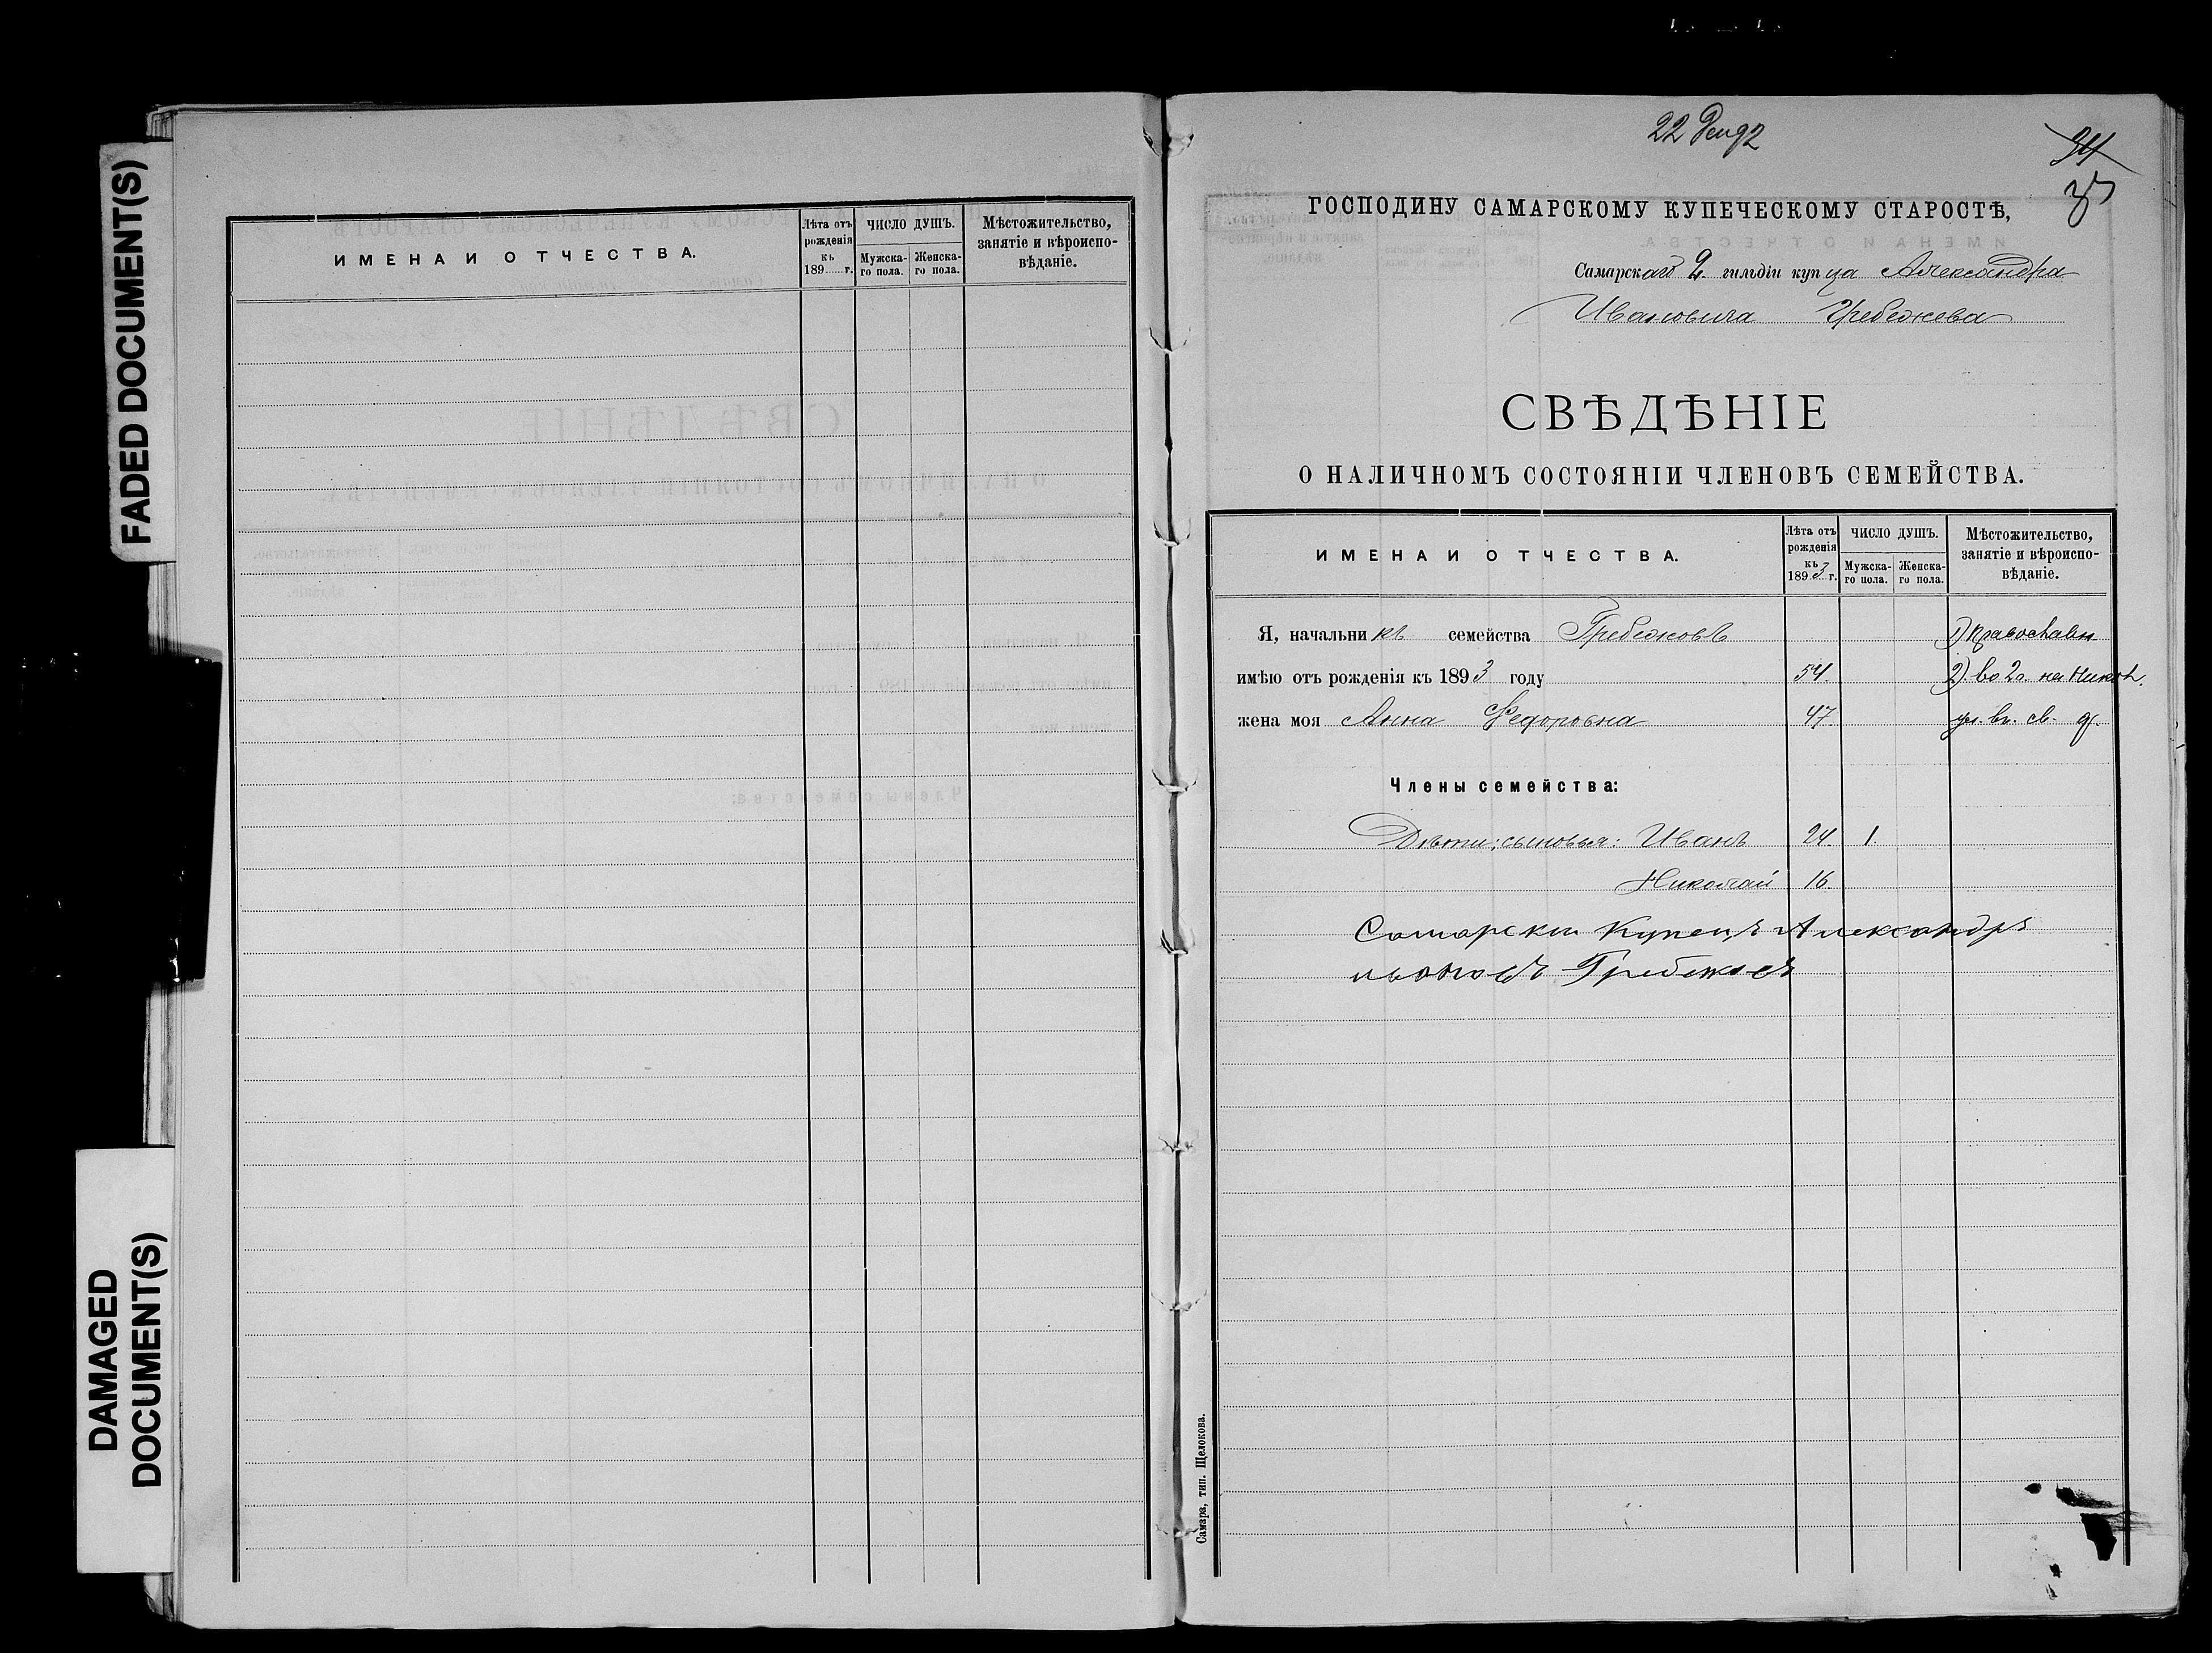 FADED DOCUMENT(S)
DAMAGED
DOCUMENT(S)
ИМЕНА И ОТЧЕСТВА.
Лѣта отъ рожденія къ 189 г.
ЧИСЛО ДУШЪ.
Мужска-го пола.
Женска-го пола.
Мѣстожительство, занятіе и вѣроиспо-вѣданіе.
22 Дек 92
34
35
ГОСПОДИНУ САМАРСКОМУ КУПЕЧЕСКОМУ СТАРОСТѢ,
Самарскаго 2. гильдіи купца Александра
Ивановича Гребежева
СВѢДѢНІЕ
О НАЛИЧНОМЪ СОСТОЯНІИ ЧЛЕНОВЪ СЕМЕЙСТВА.
ИМЕНА И ОТЧЕСТВА.
Лѣта отъ рожденія къ 1893 г.
ЧИСЛО ДУШЪ.
Мужска-го пола.
Женска-го пола.
Мѣстожительство, занятіе и вѣроиспо-вѣданіе.
Я, начальникъ семейства 1) Православн
имѣю отъ рожденія къ 1893 году 54. 2). во 2 ч. на Никол.
жена моя Анна Федоровна 47 ул. въ св. д.
Члены семейства:
Дѣти: сыновья: Иванъ 24. 1.
Николай 16.
Самарски Купецъ Александръ
Самара, тип. Щелокова.